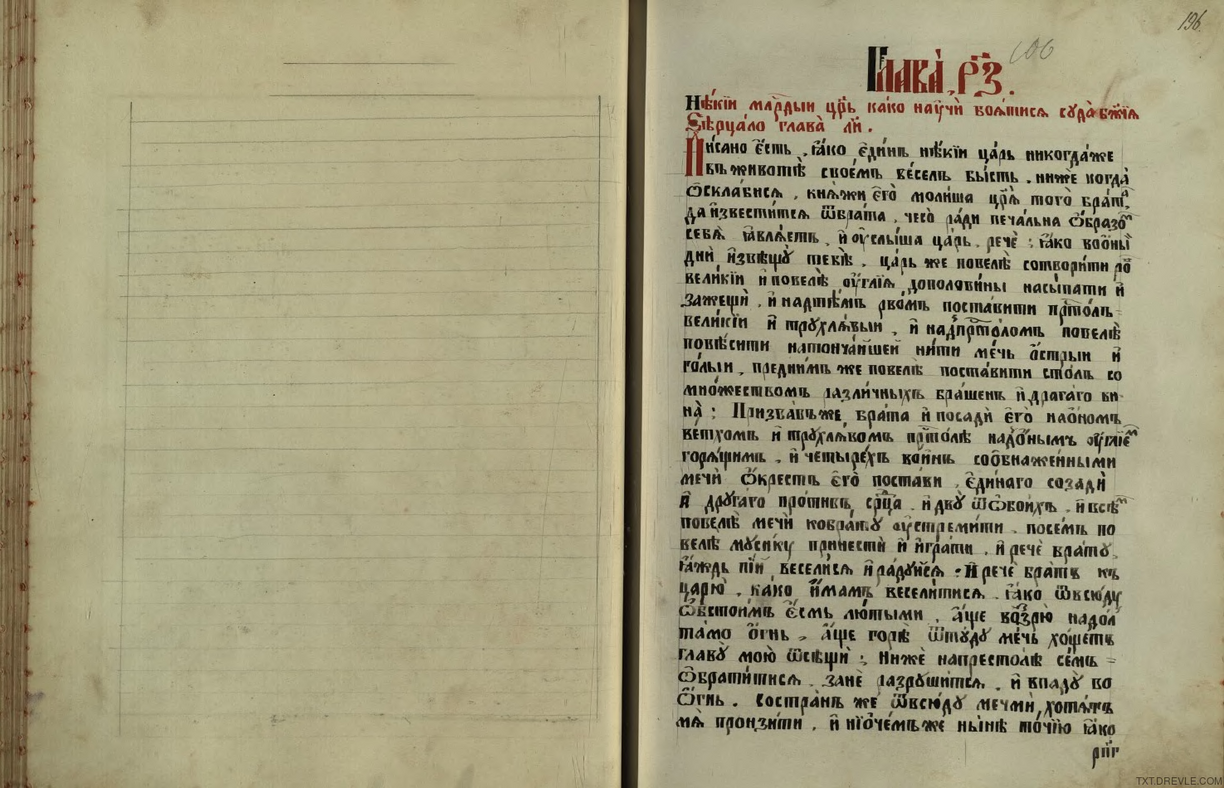 196
106
Глава̀ , р҃з .
Нѣ́кїи млⷭ҇рдыи цр҃ь ка́ко наꙋчѝ боѧ́тисѧ сꙋда̀ бж҃їѧ
Ѕе́рца́ло глава̀ ли҃ .
Писано є҆́сть , ꙗ҆́ко є҆ди́нъ нѣ́кїи ца́рь никогда́же
въ животѣ̀ своє́мъ ве́селъ бы́сть . ниже когда̀
ѡ҆склабисѧ , кнѧ́жи є҆го̀ моли́ша цр҃ѧ̀ того̀ бра́тⷶ
да и҆звести́тсѧ ѿбра́та , чесо̀ ра́ди печа́льна ѡ҆́бразоⷨ
себѧ̀ ꙗ҆влѧ́етъ , и҆ ᲂу҆слы́ша ца́рь , речѐ : ꙗ҆́ко во ѻ҆́ны
дни̑ и҆звѣщꙋ̀ тебѣ̀ . ца́рь же повелѣ̀ сотвори́ти ро́
вели́кїи и҆ повелѣ̀ ᲂу҆́глїѧ дополови́ны насы́пати и҆
зажещѝ , и҆ надтѣ́мъ рвомъ поста́вити прⷭ҇то́лъ
вели́кїи и҆ трꙋхлѧ́выи , и҆ надпрⷭ҇то́ломъ повелѣ̀
повѣ́сити натонча́ишей ни́ти ме́чь ѻ҆́стрыи и҆
го́лыи , предни́мъ же повелѣ̀ поста́вити сто́лъ со
мно́жествомъ разли́чныхъ бра́шенъ и҆ драга́го ви
на̀ : Призва́въже бра́та и҆ посадѝ є҆го̀ наѻ҆́номъ
ветхомъ и҆ трꙋхлѧ́вомъ прⷭ҇то́лѣ надѻ́нымъ ᲂу҆́глїеⷨ
горѧ́щимъ , и҆ четы́рехъ во́инъ соѻбнаже́нными
мечѝ ѡ҆́крестъ є҆го̀ поста́ви , є҆ди́наго созадѝ
а҆ дрꙋга́го про́тивъ срⷣца , и҆ двꙋ̀ ѿѻбои́хъ , и҆ всѣⷨ
повелѣ̀ мечѝ кобра́тꙋ ᲂу҆стреми́ти . посе́мъ по
велѣ̀ мꙋсикꙋ принестѝ и҆ и҆гра́ти , и҆ речѐ бра́тꙋ ,
ꙗ҆́ждь пїи̑ весели́сѧ и҆ ра́дꙋйсѧ : И҆ речѐ бра́тъ къ
царю̀ , ка́ко и҆́мамъ весели́тисѧ , ꙗ҆́ко ѿвсю́дꙋ
ѡ҆бстои́мъ є҆́смь лю́тыми , а҆́ще воззрю̀ надолⷹ
та́мо ѻ҆́гнь , а҆́ще горѣ̀ ѿтꙋ́дꙋ ме́чь хо́щетъ
главꙋ̀ мою̀ ѿсѣщѝ : Нижѐ напресто́лѣ се́мъ
ѡ҆брати́тисѧ , занѐ разрꙋши́тсѧ , и҆ впадꙋ̀ во
ѻ҆́гнь . Востра́нъ же ѿвсю́дꙋ мечмѝ хотѧ́тъ
мѧ̀ пронзи́ти , и҆ ни ѻ҆ че́мъже ны́нѣ то́чїю ꙗ҆́ко
рпг҃
TXT.DREVLE.COM